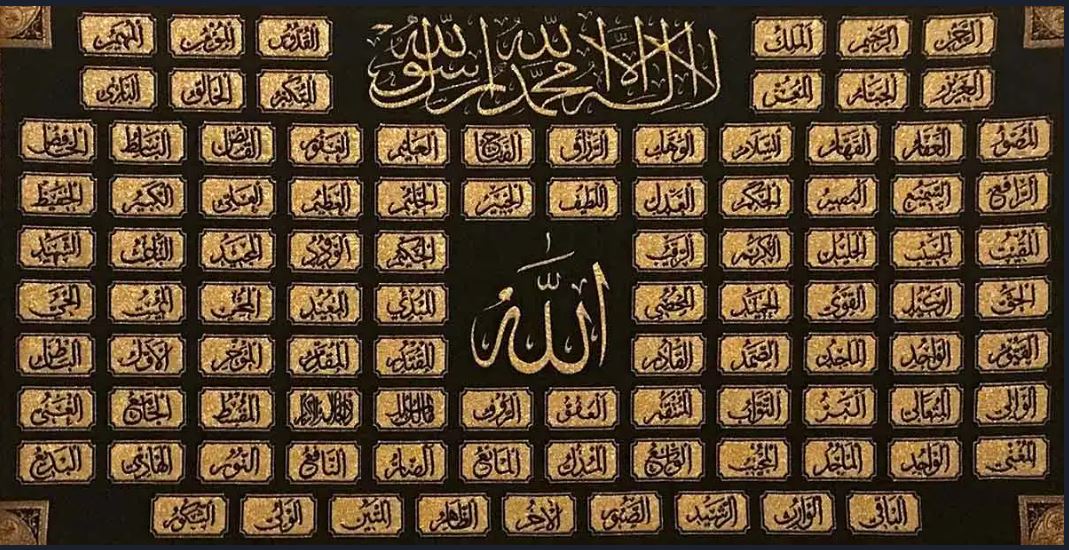 لا إله إلا الله محمد رسول الله
الرحمن الرحيم الملك القدوس المؤمن المهيمن
العزيز الجبار المعز المتكبر الخالق البارئ
المصور الغفار القهار السلام الوهاب الرزاق الفتاح العليم الغفور القابض الباسط الخافض
الرافع السميع البصير الحكم العدل اللطيف الخبير الحليم العظيم العلي الكبير الحفيظ
المقيت الحسيب الجليل الكريم الرقيب الحكيم الودود المجيد الباعث الشهيد
الله
الحق الوكيل القوي الحميد المحصي المبدئ المعيد المحيي المميت الحي
القيوم الواجد الماجد الصمد القادر المقتدر المقدم المؤخر الأول الباطن
الوالي المتعالي البر التواب المنتقم العفو الرؤوف مالك الملك ذو الجلال والإكرام المقسط الجامع الغني
المغني الواحد المجيب الواسع المذل المانع الضار النافع النور الهادي البديع
الباقي الوارث الرشيد الصبور الآخر الظاهر المتين الولي الشكور